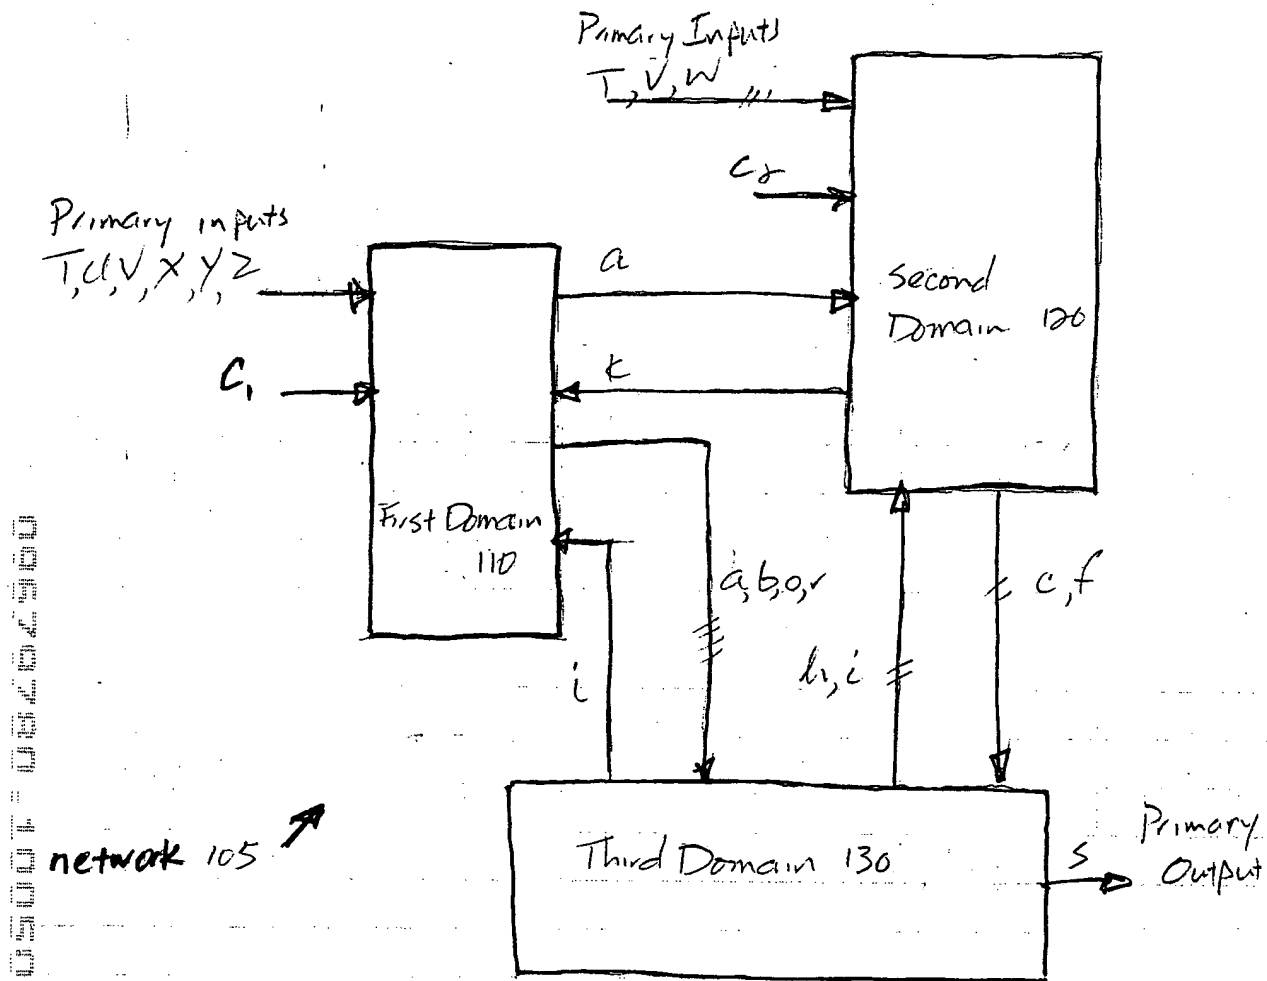 Primary Inputs
T, V, W
C2
Primary inputs
T, U, V, X, Y, Z
C1
a
k
Second
Domain 120
First Domain
110
a, b, o, r
i
h, i
c, f
network 105
Third Domain 130
S
Primary
Output